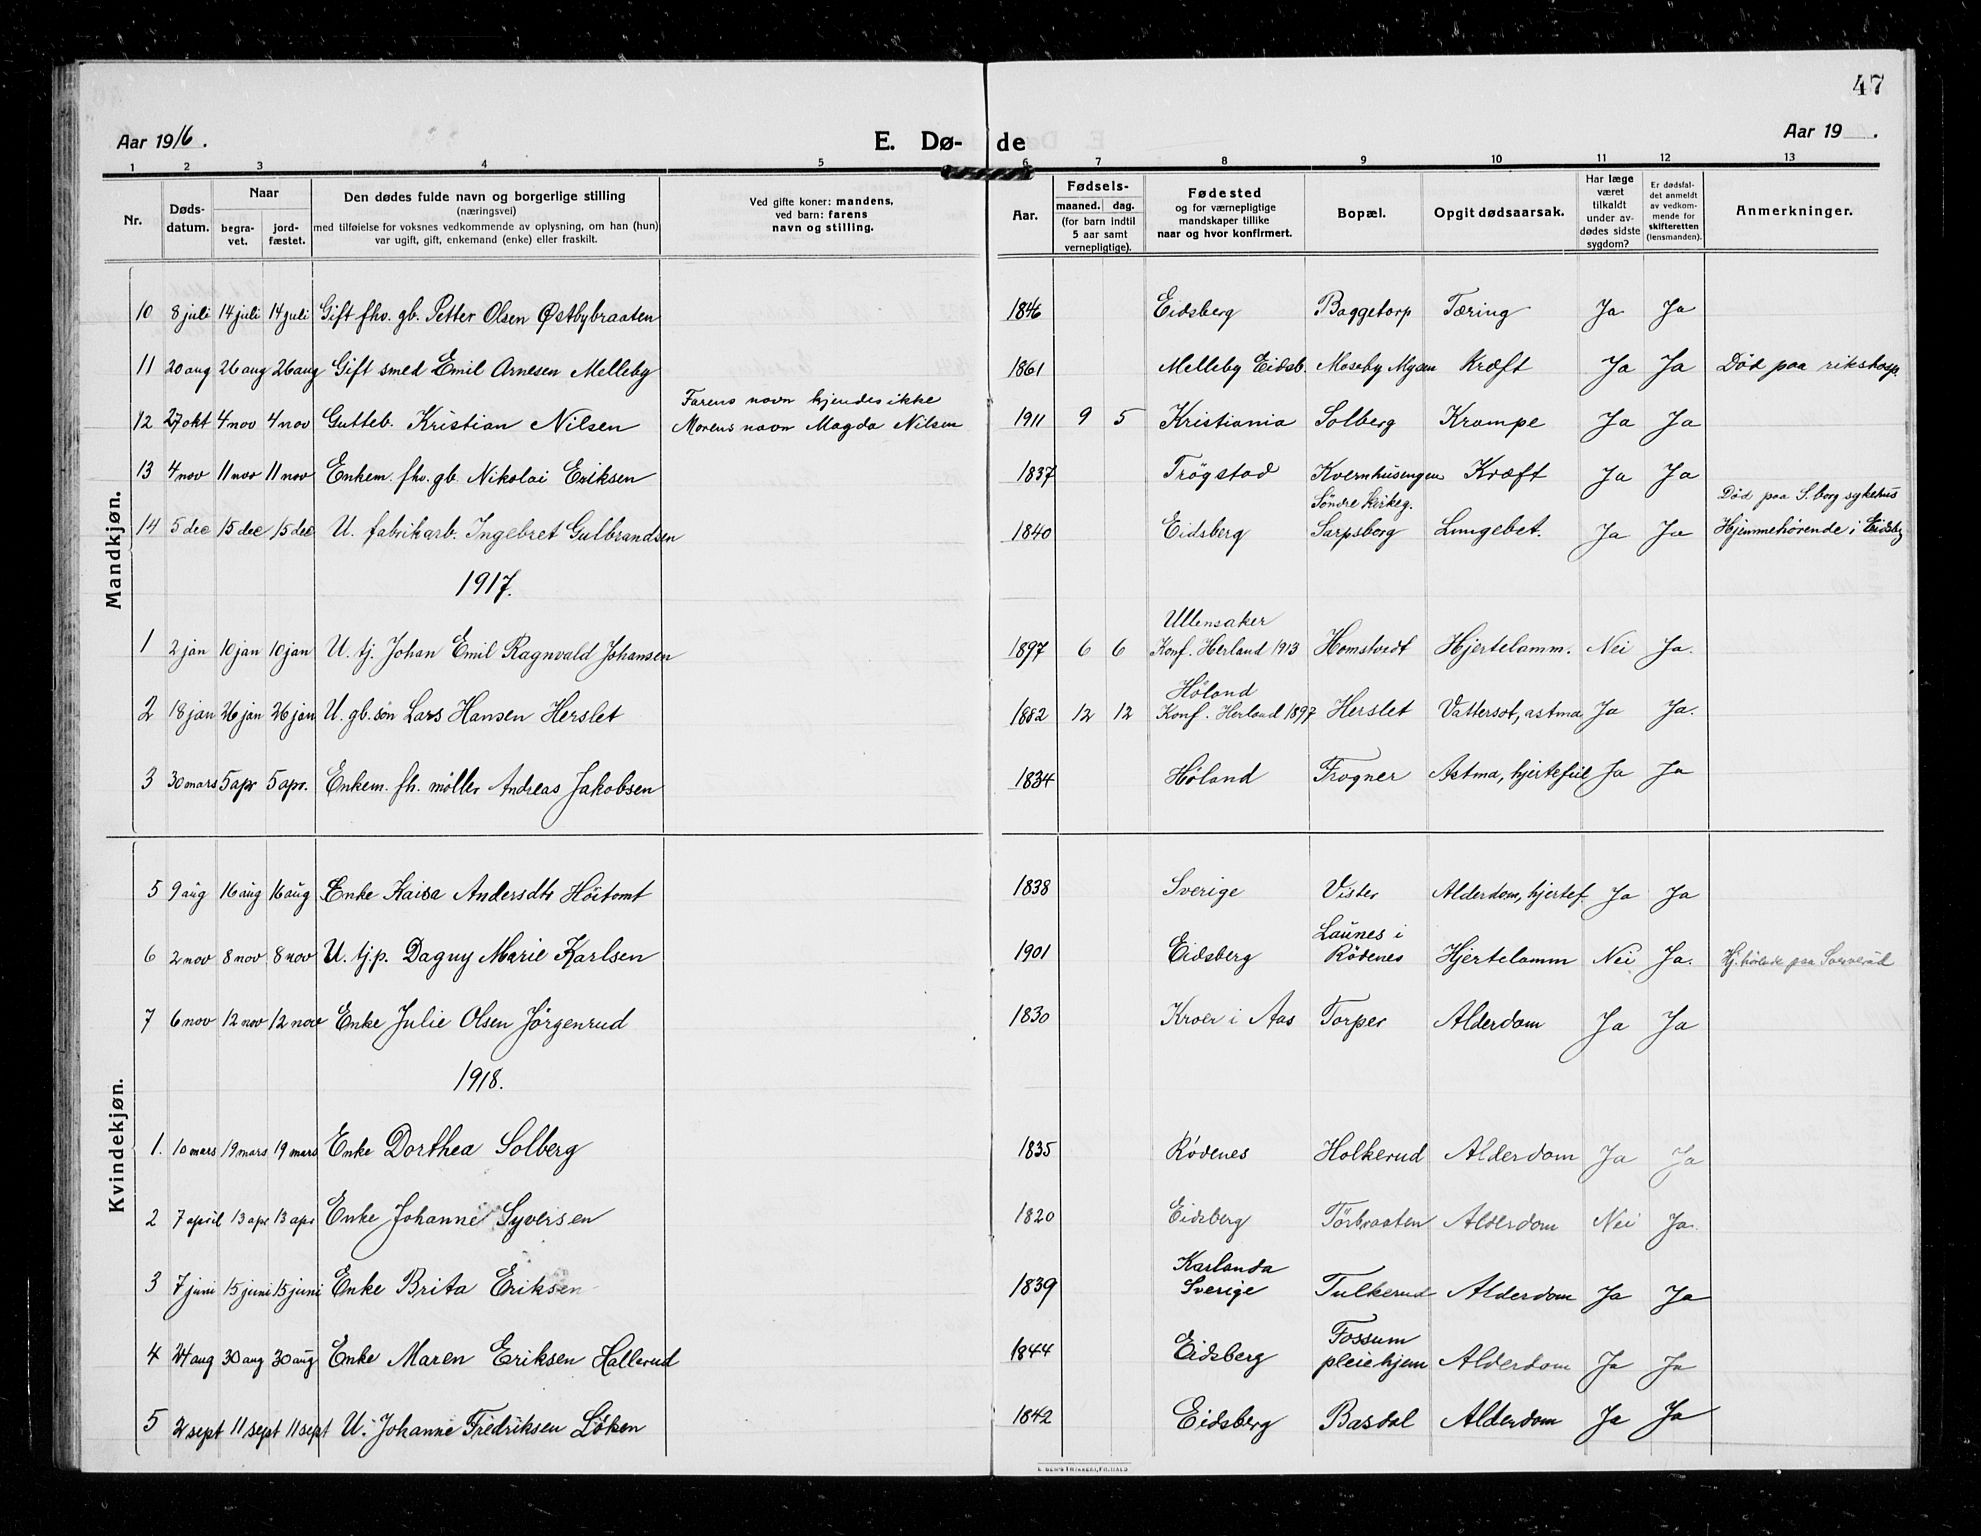 47
Aar 1916. E. Dø- de Aar 19 .
1 2 3 4 5 6 7 8 9 10 11 12 13
Nr. Døds-datum. Naar begra-vet. jord-fæstet. Den dødes fulde navn og borgerlige stilling (næringsvei) med tilføielse for voksnes vedkommende av oplysning, om han (hun) var ugift, gift, enkemand (enke) eller fraskilt. Ved gifte koner: mandens, ved barn: farens navn og stilling. Aar. Fødsels- maaned. dag. (for barn indtil 5 aar samt vernepligtige). Fødested og for værnepligtige mandskaper tillike naar og hvor konfirmert. Bopæl. Opgit dødsaarsak. Har læge været tilkaldt under av-dødes sidste sygdom? Er dødsfal-det anmeldt av vedkom-mende for skifteretten (lensmanden). Anmerkninger.
Mandkjøn.
10 8 juli 14 juli 14 juli Gift fhv. gb. Petter Olsen Østbybraaten 1846 Eidsberg Baggetorp Tæring Ja Ja
11 20 aug 26 aug 26 aug Gift smed Emil Arnesen Melleby 1861 Melleby Eidsb. Moseby Mysen Kræft Ja Ja Død paa rikshosp.
Farens navn kjendes ikke
12 27 okt 4 nov 4 nov Gutteb. Kristian Nilsen Morens navn Magda Nilsen 1911 9 5 Kristiania Solberg Krampe Ja Ja
13 4 nov 11 nov 11 nov Enkem. fhv. gb. Nikolai Eriksen 1837 Trøgstad Kvernhusengen Kræft Ja Ja
Søndre Kirkeg. Død paa S.borg sykehus
14 5 dec 15 dec 15 dec U. fabrikarb. Ingebret Gulbrandsen 1840 Eidsberg Sarpsborg Lungebet. Ja Ja Hjemmehørende i Eidsbg
1917.
Ullensaker
1 2 jan 10 jan 10 jan U. tj. Johan Emil Ragnvald Johansen 1897 6 6 Konf. Herland 1913 Homstvedt Hjertelamm. Nei Ja.
Høland
2 18 jan 26 jan 26 jan U. gb. søn Lars Hansen Herslet 1882 12 12 Konf. Herland 1897 Herslet Vattersot, astma Ja Ja.
3 30 mars 5 apr 5 apr. Enkem. fh. møller Andreas Jakobsen 1834 Høland Frogner Astma, hjertefeil Ja Ja
Kvindekjøn.
5 9 aug 16 aug 16 aug Enke Kaisa Andersdtr Höitomt 1838 Sverige Vister Alderdom, hjertef Ja Ja
Launes i
6 2 nov 8 nov 8 nov U. tj.p. Dagny Marie Karlsen 1901 Eidsberg Rödenes Hjertelamm Nei Ja. paa
7 6 nov 12 nov 12 nov Enke Julie Olsen Jörgenrud 1830 Kroer i Aas Torper Alderdom Ja Ja
1918.
1. 10 mars 19 mars 19 mars Enke Dorthea Solberg 1835 Rödenes Holkerud Alderdom Ja Ja
2 7 april 13 apr 13 apr Enke Johanne Syversen 1820 Eidsberg Törbraaten Alderdom Nei Ja.
Karlanda
3 7 juni 15 juni 15 juni Enke Brita Eriksen 1839 Sverige Tulkerud Alderdom Ja Ja
Fossum
4 24 aug 30 aug 30 aug Enke Maren Eriksen Hallerud 1844 Eidsberg pleiehjem Alderdom Ja Ja
5 2 sept 11 sept 11 sept U. Johanne Fredriksen Löken 1842 Eidsberg Basdal Alderdom Ja Ja